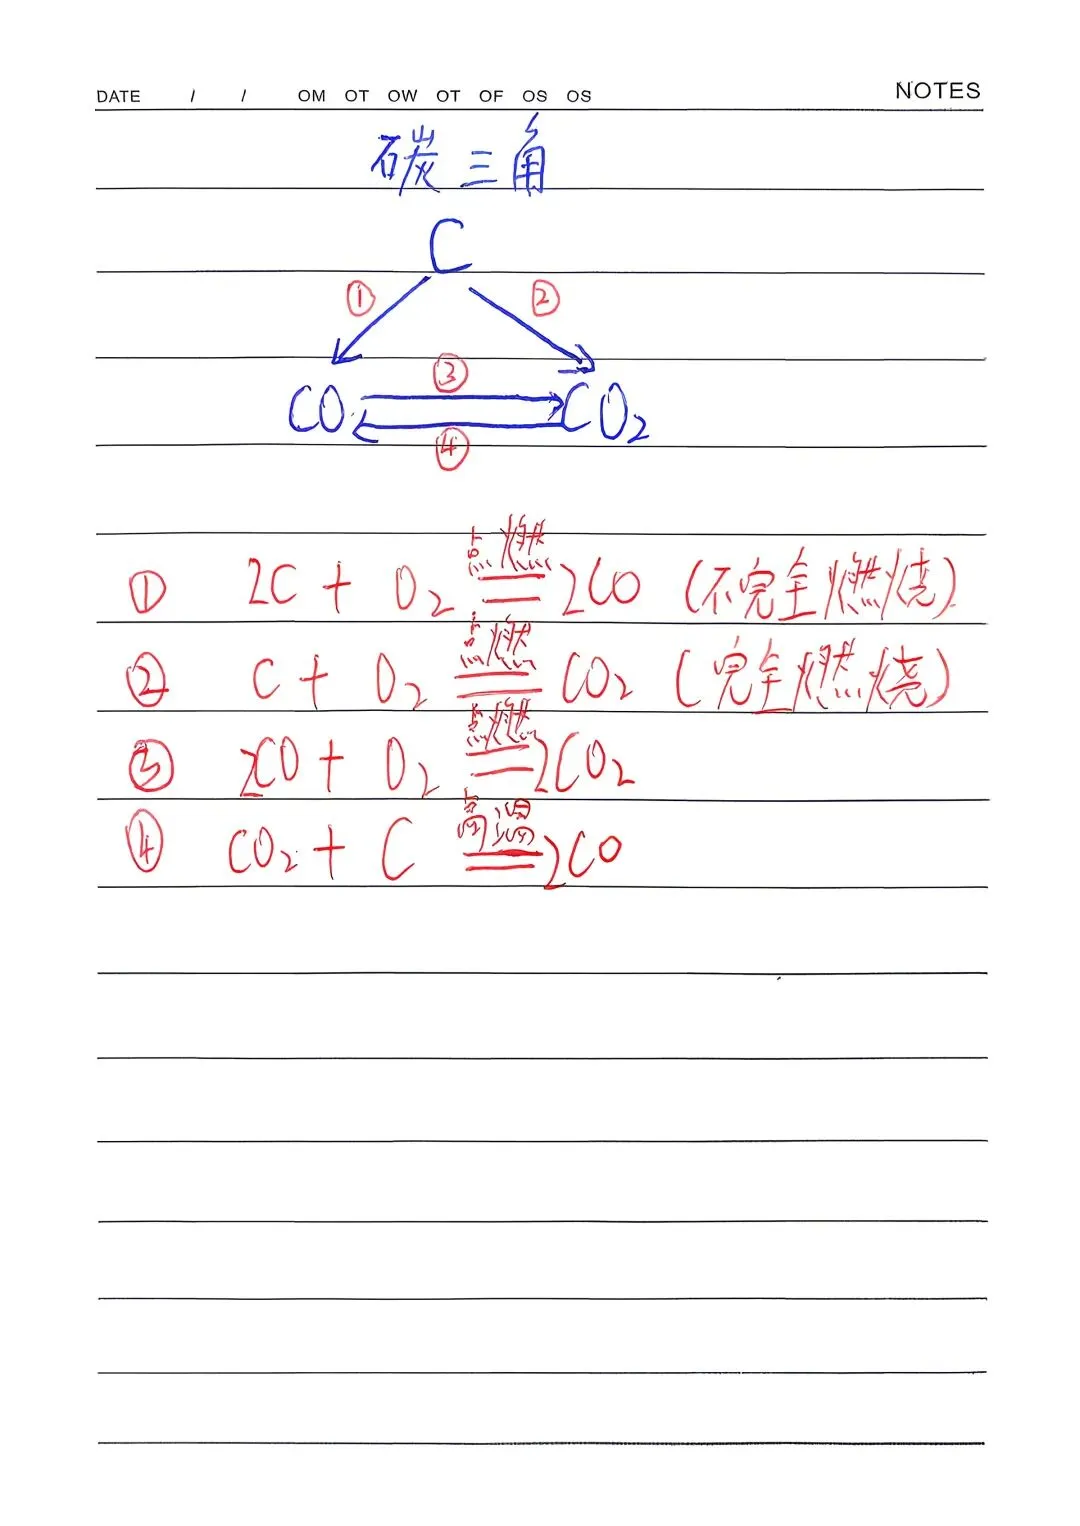 DATE / / OM OT OW OT OF OS OS NOTES
碳三角
C
① ②
③
CO CO₂
④
① 2C + O₂ 点燃 2CO (不完全燃烧)
② C + O₂ 点燃 CO₂ (完全燃烧)
③ 2CO + O₂ 点燃 2CO₂
④ CO₂ + C 高温 2CO